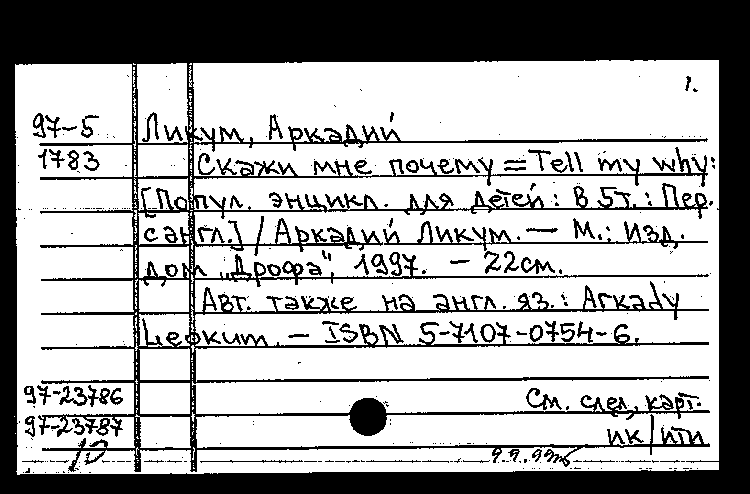 1.
97-5 Ликум, Аркадий
1783 Скажи мне почему = Tell my why:
[Попул. энцикл. для детей: В 5т.: Пер.
с англ] / Аркадий Ликум. — М.: Изд.
дом „Дрофа", 1997. — 22см.
Авт. также на англ. яз.: Arkady
Leokum. — ISBN 5-7107-0754-6.
97-23786 См. след. карт.
97-23787 ик/ити
10